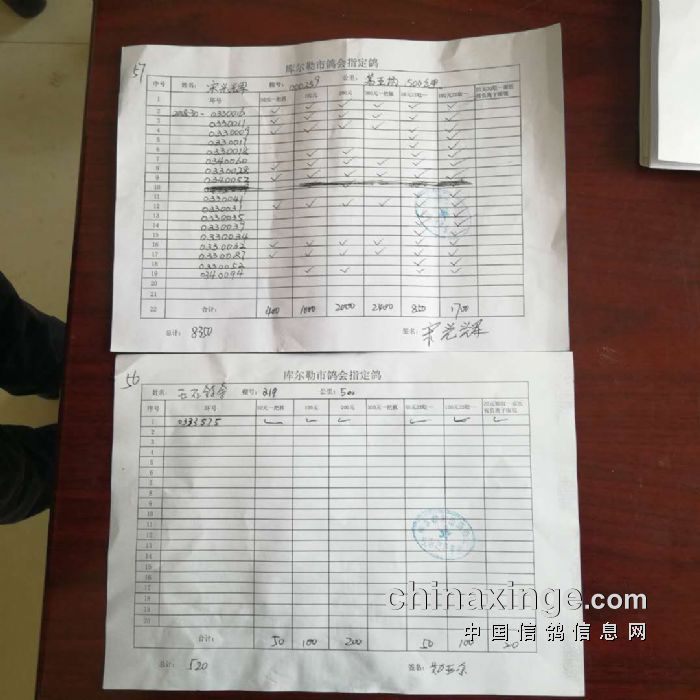 57
库尔勒市鸽会指定鸽
姓名: 宋光辉 棚号: 000259 公里: 500公里
序号 环号 50元一把抓 100元 200元 300元一把抓 50元 100元
1
2 2018-30-0330006
3 0330011
4 0330009
5 0330019
6 0330018
7 0340060
8 0330028
9 0340052
10
11 0330041
12 0330031
13 0330035
14 0330037
15 0330034
16 0330032
17 0330087
18 0330052
19 0340094
20
21
22 合计: 400 1000 2000 2400 850 1700
总计: 8350 签名: 宋光辉
56
库尔勒市鸽会指定鸽
姓名: 棚号: 319 公里: 500
序号 环号 50元一把抓 100元 200元 300元一把抓 50元 100元
1 0333575
2
3
4
5
6
7
8
9
10
11
12
13
14
15
16
17
18
19
20
合计: 50 100 200 50 100 20
总计: 520 签名:
chinaxinge.com
中国信鸽信息网